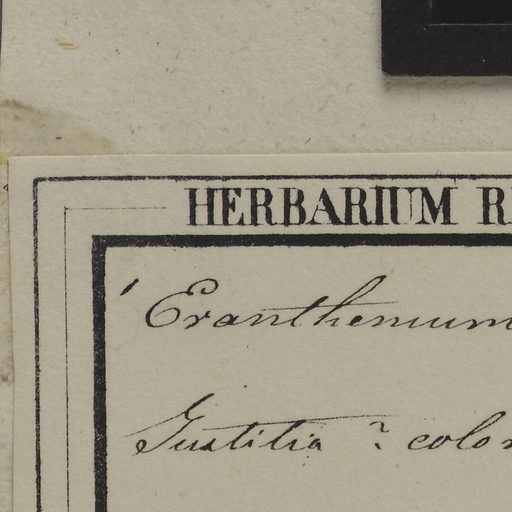 HERBARIUM R
' Eranthemum
Justitia ? color